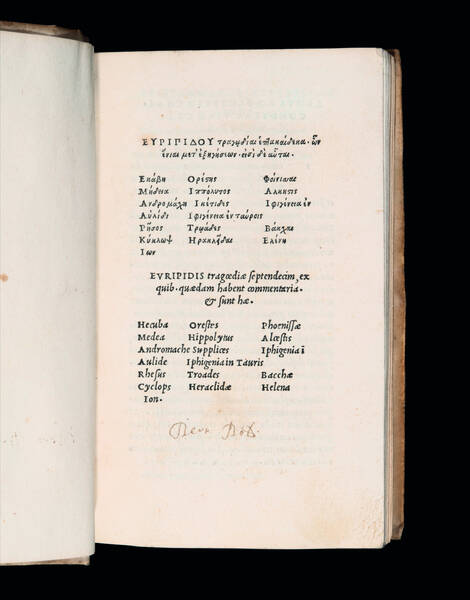 ΕΥΡΙΠΙΔΟΥ τραγῳδίαι ἑπτακαίδεκα· ὧν
ἔνιαι μετ' ἐξηγήσεων· εἰσὶ δὲ αὗται.
Εκάβη Ορέστης Φοίνισσαι
Μήδεια Ιππόλυτος Αλκηστις
Ανδρομάχη Ικέτιδες Ιφιγένεια ἐν
Αυλίδι Ιφιγένεια ἐν ταύροις
Ρῆσος Τρῳάδες Βάκχαι
Κύκλωψ Ηρακλεῖδαι Ελένη
Ιων
EVRIPIDIS tragœdiæ septendecim, ex
quib. quædam habent commentaria.
& sunt hæ.
Hecuba Orestes Phœnissæ
Medea Hippolytus Alcestis
Andromache Supplices Iphigenia ī
Aulide Iphigenia in Tauris
Rhesus Troades Bacchæ
Cyclops Heraclidæ Helena
Ion.